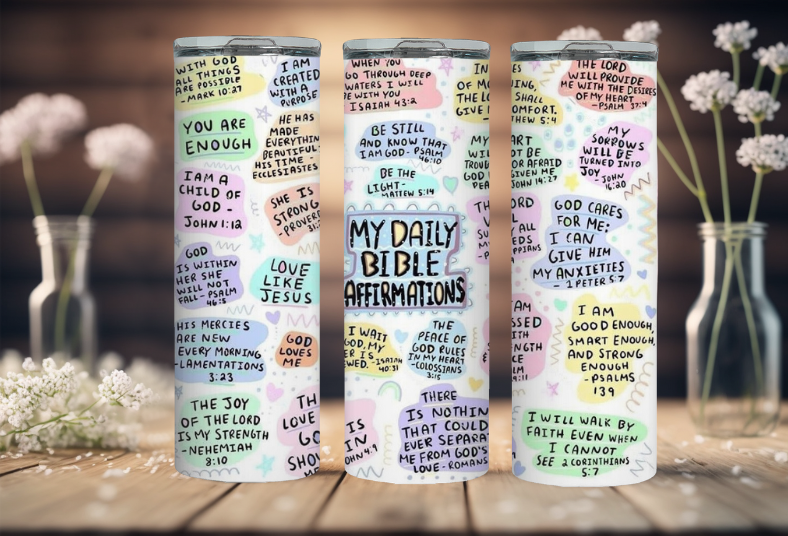 WITH GOD
ALL THINGS
ARE POSSIBLE
-MARK 10:27
I AM
CREATED
WITH A
PURPOSE
YOU ARE
ENOUGH
HE HAS
MADE
EVERYTHING
BEAUTIFUL
HIS TIME -
ECCLESIASTES
I AM A
CHILD OF
GOD -
JOHN 1:12
SHE IS
STRONG
-PROVERB
31:
GOD
IS WITHIN
HER SHE
WILL NOT
FALL - PSALM
46:5
LOVE
LIKE
JESUS
HIS MERCIES
ARE NEW
EVERY MORNING
-LAMENTATIONS
3:23
GOD
LOVES
ME
THE JOY
OF THE LORD
IS MY STRENGTH
- NEHEMIAH
8:10
TH
LOVE
GO
SHOW
WHEN YOU
GO THROUGH DEEP
WATERS I WILL
BE WITH YOU
ISAIAH 43:2
IN
OF M
THE LO
GIVE
BE STILL
AND KNOW THAT
I AM GOD - PSALM
46:10
BE THE
LIGHT -
MATTEW 5:14
MY
WI
TROUB
GOD
PEA
MY DAILY
BIBLE
AFFIRMATIONS
TH
V
SU
M
-P
I WAIT
GOD, MY
ER IS
WED. -ISAIAH
40:31
THE
PEACE OF
GOD RULES
IN MY HEART
-COLOSSIANS
3:15
IS
IN
OHN 4:9
THERE
IS NOTHIN
THAT COULD
EVER SEPARAT
ME FROM GOD'S
LOVE - ROMANS
ES
ING,
SHALL
OMFORT.
THEW 5:4
THE LORD
WILL PROVIDE
ME WITH THE DESIRES
OF MY HEART
- PSALM 37:4
ART
OT BE
OR AFRAID
GIVEN ME
JOHN 14:27
MY
SORROWS
WILL BE
TURNED INTO
JOY - JOHN
16:20
ORD
L
Y ALL
EEDS
PPIANS
GOD CARES
FOR ME;
I CAN
GIVE HIM
MY ANXIETIES
- 1 PETER 5:7
AM
SSED
ITH
NGTH
CE
LM
I AM
GOOD ENOUGH,
SMART ENOUGH,
AND STRONG
ENOUGH
-PSALMS
139
I WILL WALK BY
FAITH EVEN WHEN
I CANNOT
SEE 2 CORINTHIANS
5:7